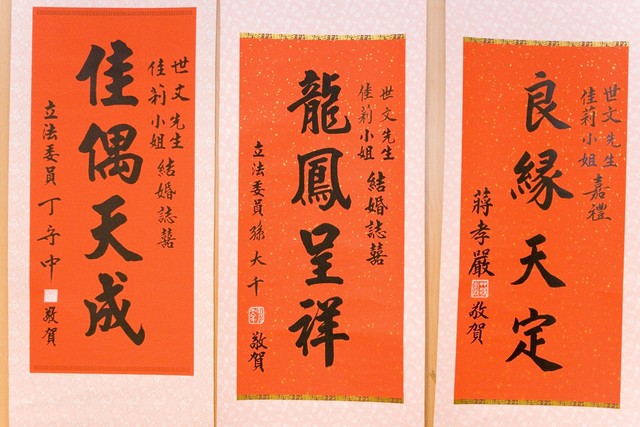 世文先生
佳莉小姐
結婚誌囍
佳偶天成
立法委員丁守中
敬賀
世文先生
佳莉小姐
結婚誌囍
龍鳳呈祥
立法委員孫大千
敬賀
世文先生
佳莉小姐
嘉禮
良緣天定
蔣孝嚴
敬賀